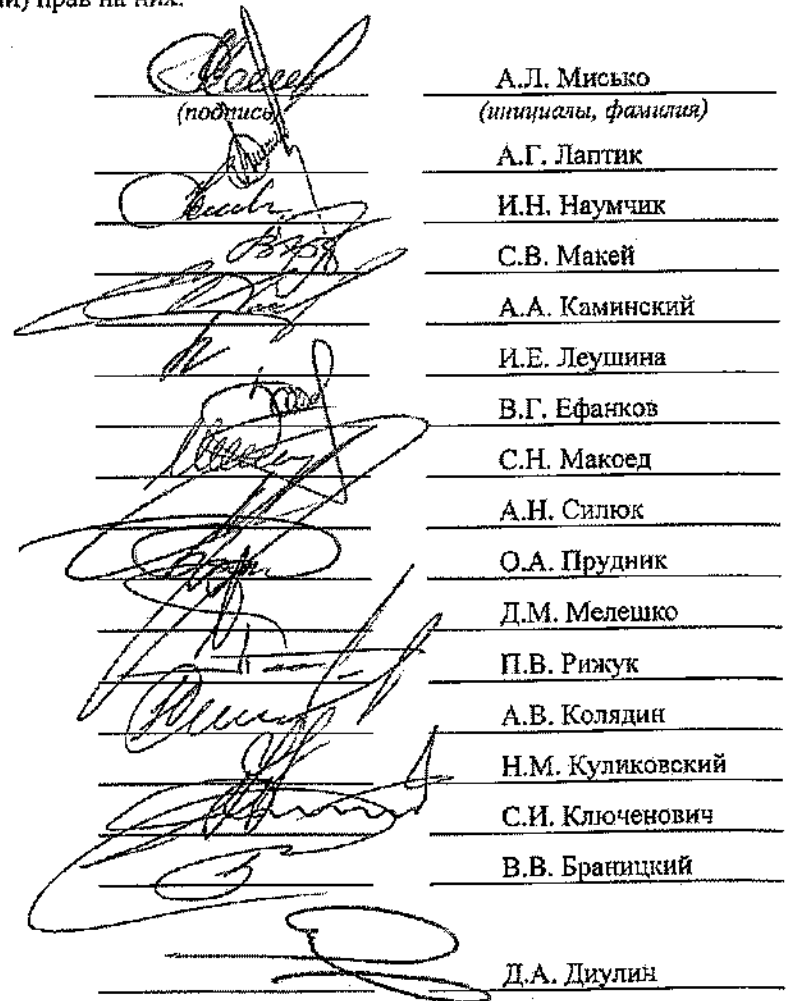 прав на них.
А.Л. Мисько
(подпись) (инициалы, фамилия)
А.Г. Лаптик
И.Н. Наумчик
С.В. Макей
А.А. Каминский
И.Е. Леушина
В.Г. Ефанков
С.Н. Макоед
А.Н. Силюк
О.А. Прудник
Д.М. Мелешко
П.В. Рижук
А.В. Колядин
Н.М. Куликовский
С.И. Ключенович
В.В. Браницкий
Д.А. Диулин